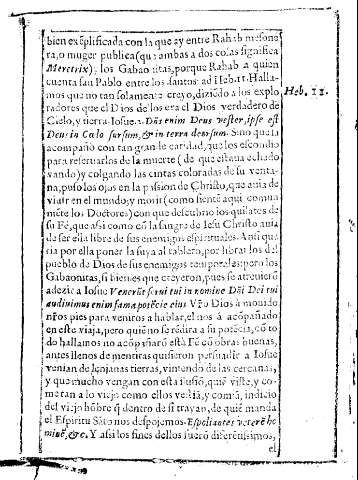 bien exẽplificada con la que ay entre Rahab mesone
ra, o muger publica (que ambas a dos cosas significa
Meretrix) y los Gabaonitas, porque Rahab a quien
cuenta san Pablo entre los santos ad Heb. 11. Halla-
mos que no tan solamente creyo, diziẽdo a los explo
radores que el Dios de los era el Dios verdadero de
Cielo, y tierra. Iosue. 2. Dñs enim Deus vester, ipse est
Deus in Cœlo sursum, & in terra deorsum. Sino que la
acompañò con tan gran de caridad, que los escondio
para reseruarlos de la muerte (de que estaua echado
vando) y colgando las cintas coloradas de su venta-
na, puso los ojos en la passion de Christo, que auia de
viuir en el mundo, y morir (como siente aqui comun
mẽte los Doctores) con que descubrio los quilates de
su Fè, que assi como cõ la sangre de Iesu Christo auia
de ser ella libre de sus enemigos espirituales. Ansi que
ria por ella poner la suya al tablero, por librar los del
pueblo de Dios de sus enemigos temporales: pero los
Gabaonitas, si bien es que creyeron, pues se atreuierõ
a dezir a Iosue Venerũt serui tui in nomine Dñi Dei tui
audiuimus enim famã potẽcie eius Vr̃o Dios à monido
nr̃os pies para veniros a hablar, el nos à acõpañado
en este viaje, pero quiẽ no se rẽdira a su potẽcia, cõ to
do hallamos no acõpañarõ està Fè cõ obras buenas,
antes llenos de mentiras quisieron persuadir a Iosue
venian de lejanas tierras, viniendo de las cercanas,
y que mucho vengan con esta ilusiõ, quiẽ viste, y co-
me tan a lo viejo como ellos vestiã, y comiã, indicio
del viejo hõbre q̃ dentro de si trayan, de quiẽ manda
el Espiritu Sãto nos despojemos. Espoliantes veterẽ ho
minẽ, &c. Y assi los fines dellos fuerõ diferẽtissimos,
el
Heb. 11.